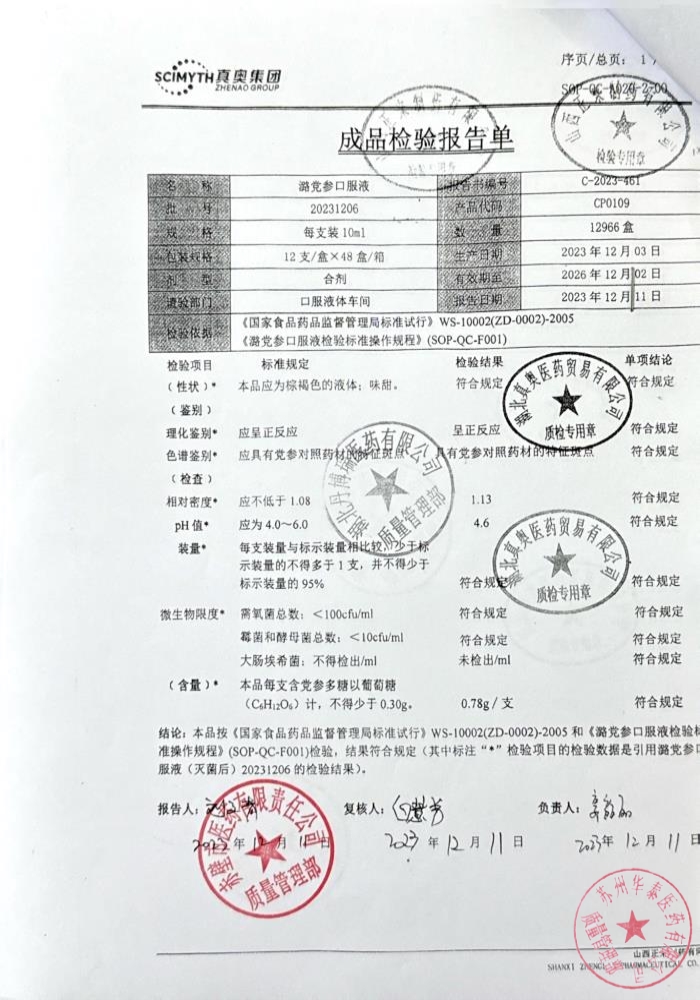 序页/总页： 1 /
SCIMYTH真奥集团
ZHENAO GROUP
SOP-QC-A020-2-00
成品检验报告单
检验专用章
名 称 潞党参口服液 报告书编号 C-2023-461
批 号 20231206 产品代码 CP0109
规 格 每支装 10ml 数 量 12966 盒
包装规格 12 支/盒×48 盒/箱 生产日期 2023 年 12 月 03 日
剂 型 合剂 有效期至 2026 年 12 月 02 日
请验部门 口服液体车间 报告日期 2023 年 12 月 11 日
检验依据 《国家食品药品监督管理局标准试行》WS-10002(ZD-0002)-2005
《潞党参口服液检验标准操作规程》(SOP-QC-F001)
检验项目 标准规定 检验结果 单项结论
（性状）* 本品应为棕褐色的液体；味甜。 符合规定 符合规定
（鉴别）
理化鉴别* 应呈正反应 呈正反应 符合规定
色谱鉴别* 应具有党参对照药材的特征斑点 具有党参对照药材的特征斑点 符合规定
（检查）
相对密度* 应不低于 1.08 1.13 符合规定
pH 值* 应为 4.0～6.0 4.6 符合规定
装量* 每支装量与标示装量相比较，少于标
示装量的不得多于 1 支，并不得少于
标示装量的 95% 符合规定 符合规定
微生物限度* 需氧菌总数：＜100cfu/ml 符合规定 符合规定
霉菌和酵母菌总数：＜10cfu/ml 符合规定 符合规定
大肠埃希菌：不得检出/ml 未检出/ml 符合规定
（含量）* 本品每支含党参多糖以葡萄糖
（C₆H₁₂O₆）计，不得少于 0.30g。 0.78g / 支 符合规定
湖北真奥医药贸易有限公司
质检专用章
湖北丹博瑞医药有限公司
质量管理部
湖北真奥医药贸易有限公司
质检专用章
结论：本品按《国家食品药品监督管理局标准试行》WS-10002(ZD-0002)-2005 和《潞党参口服液检验标
准操作规程》(SOP-QC-F001)检验，结果符合规定（其中标注“*”检验项目的检验数据是引用潞党参口
服液（灭菌后）20231206 的检验结果）。
报告人： 复核人： 负责人：
2023 年 12 月 11 日 2023 年 12 月 11 日 2023 年 12 月 11 日
医药有限责任公司
质量管理部
苏州华泰医药有限公司
质量管理部
SHANXI PHARMACEUTICAL CO.